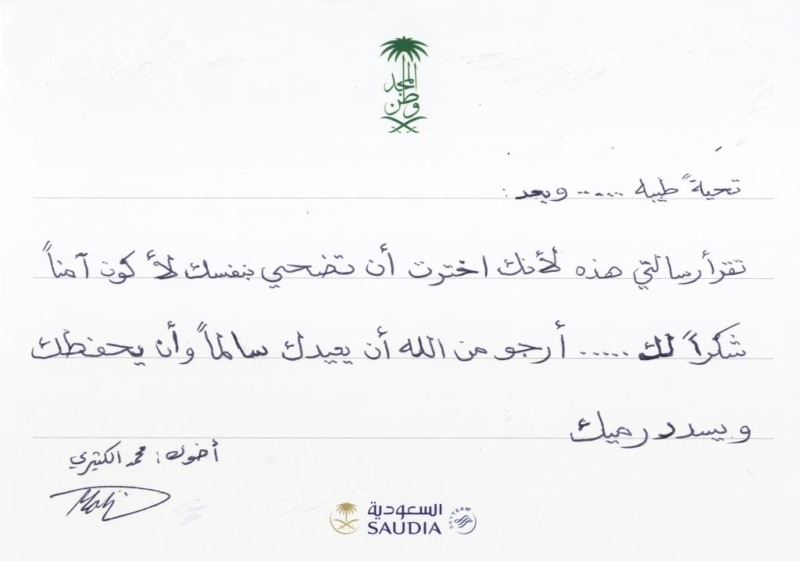 وطن المجد
تحيةً طيبه ..... وبعد :
تقرأ رسالتي هذه لأنك اخترت أن تضحي بنفسك لأكون آمناً
شكراً لك ..... أرجو من الله أن يعيدك سالماً وأن يحفظك
ويسدد رميك
أخوك : محمد الكثيري
السعودية
SAUDIA
SKYTEAM